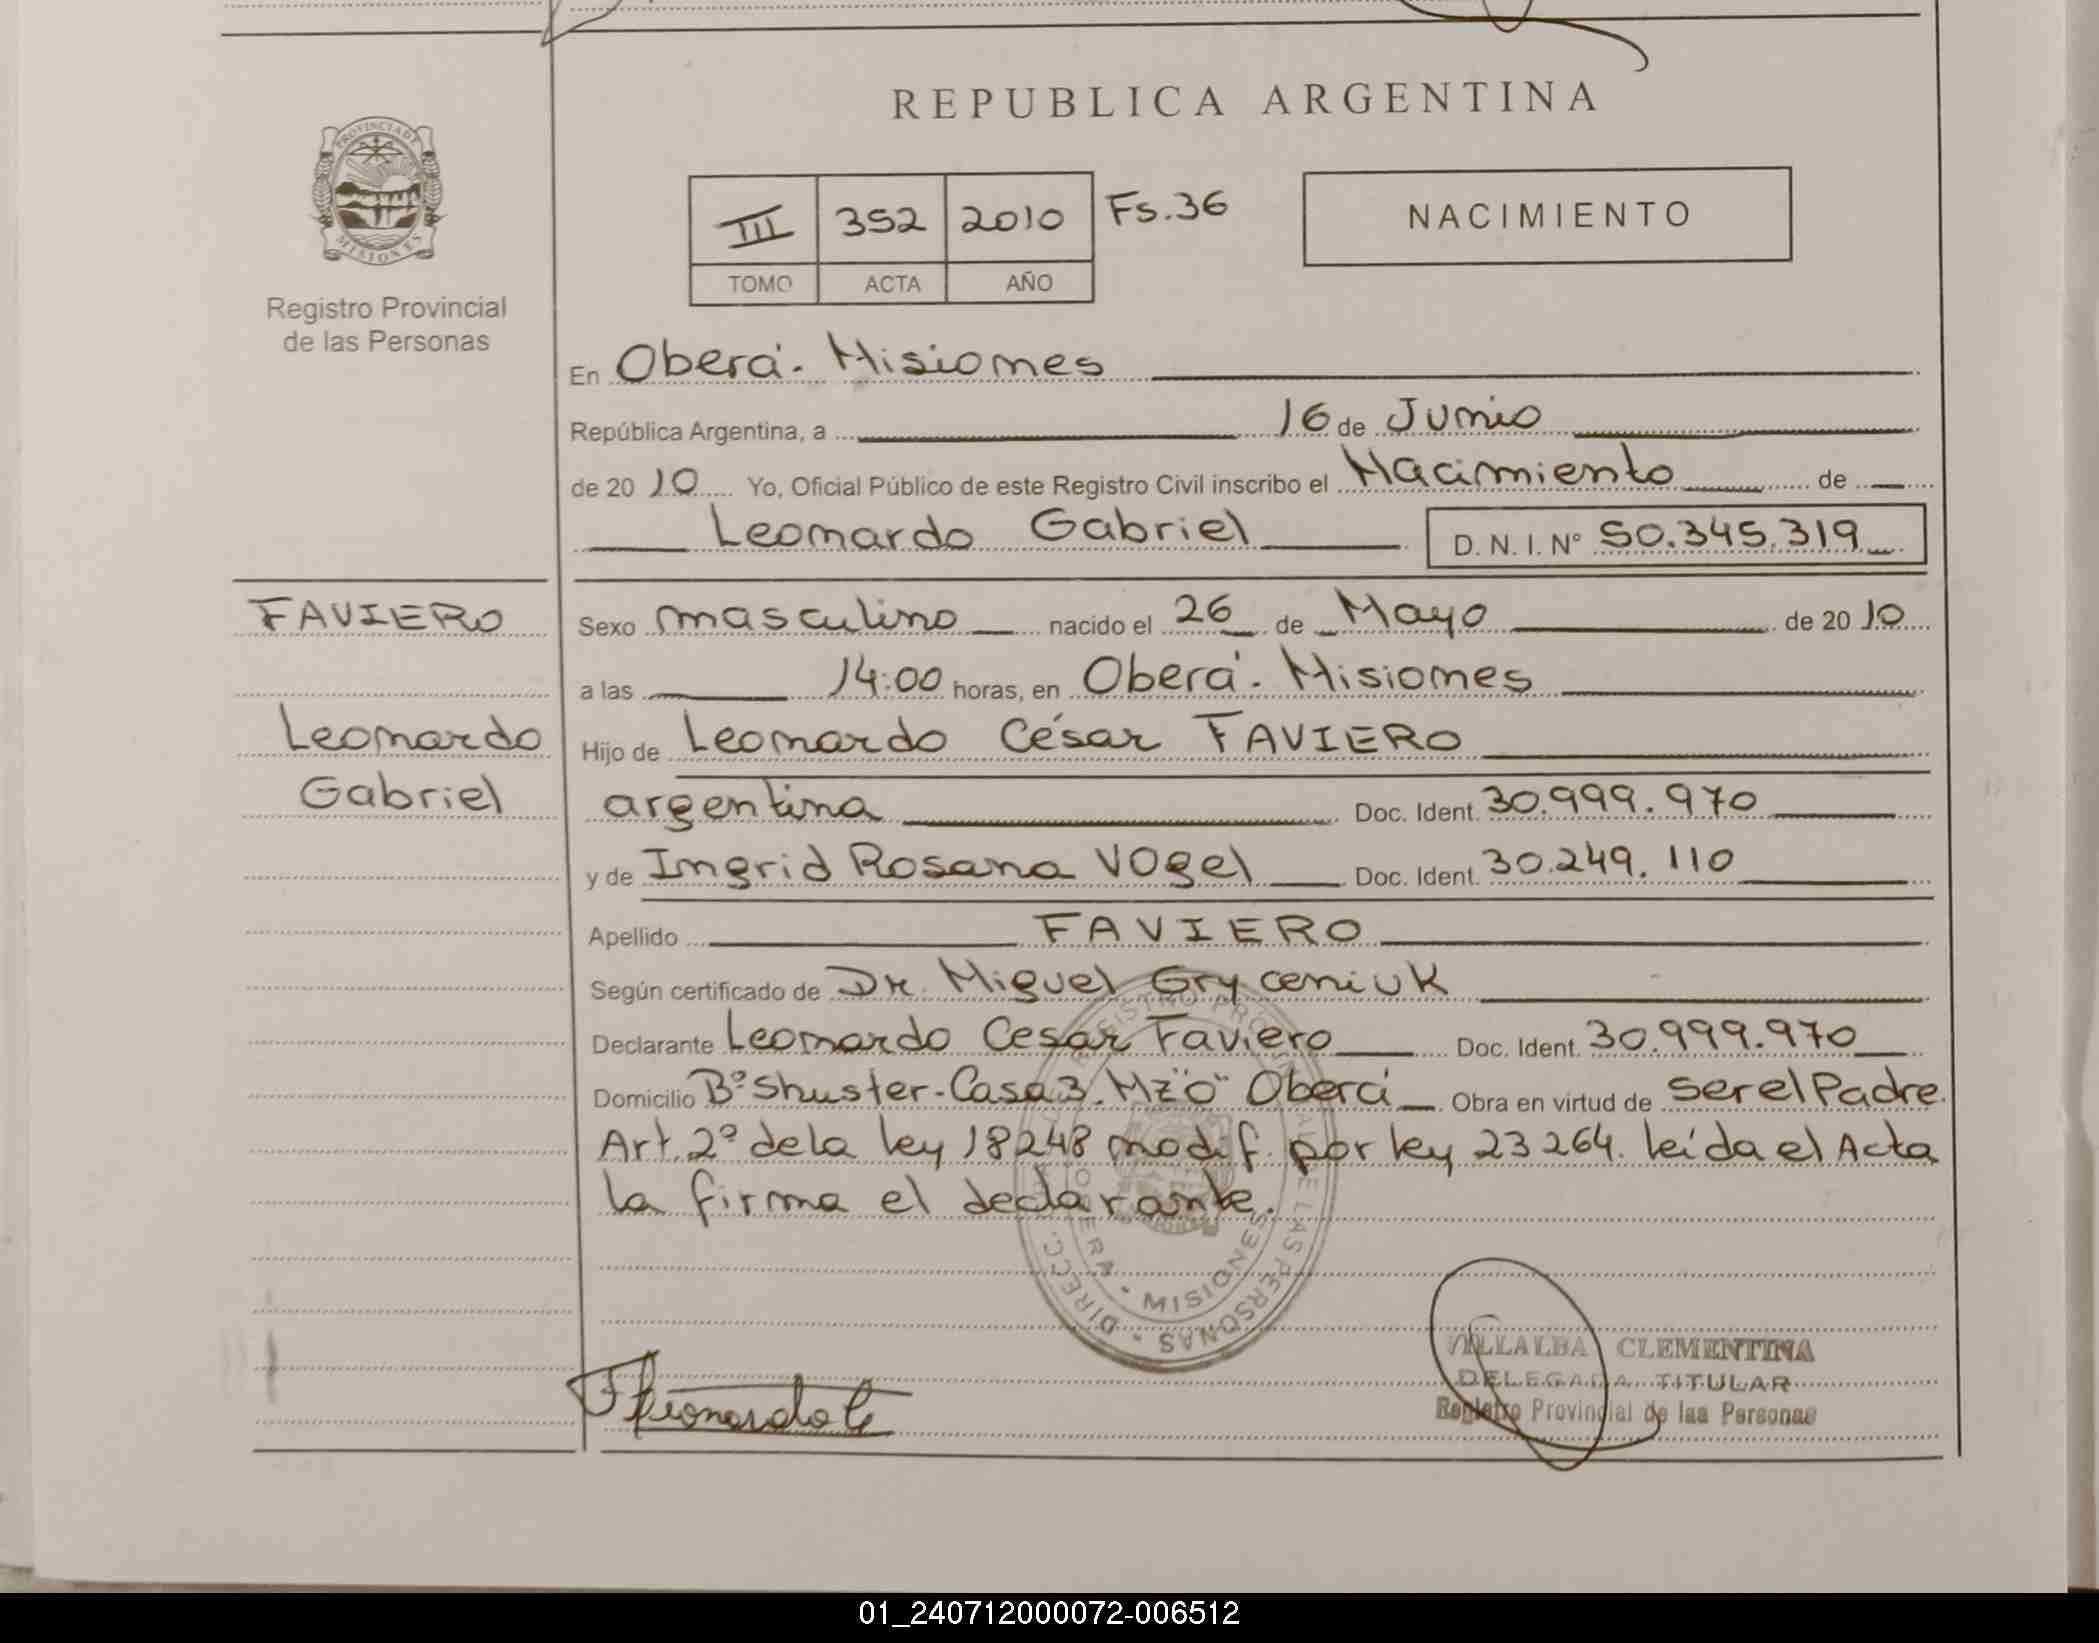 REPUBLICA ARGENTINA
PROVINCIA DE
MISIONES
Registro Provincial
de las Personas
III 352 2010 Fs.36
TOMO ACTA AÑO
NACIMIENTO
En Oberá. Misiones
República Argentina, a 16 de Junio
de 20 10 Yo, Oficial Público de este Registro Civil inscribo el Nacimiento de
Leonardo Gabriel D. N. I. N° 50.345.319
FAVIERO
Leonardo
Gabriel
Sexo masculino nacido el 26 de Mayo de 20 10
a las 14:00 horas, en Oberá. Misiones
Hijo de Leonardo César FAVIERO
argentina Doc. Ident. 30.999.970
y de Ingrid Rosana VOgel Doc. Ident. 30.249.110
Apellido FAVIERO
Según certificado de Dr. Miguel Gryceniuk
Declarante Leonardo Cesar Faviero Doc. Ident. 30.999.970
Domicilio B° Shuster-Casa 3. Mz "O" Oberá Obra en virtud de ser el Padre.
Art. 2° de la ley 18248 modif. por ley 23264. leída el Acta
la firma el declarante.
DIRECC. REGISTRO PROVINCIAL DE LAS PERSONAS
OBERA - MISIONES
VILLALBA CLEMENTINA
DELEGADA TITULAR
Registro Provincial de las Personas
01_240712000072-006512